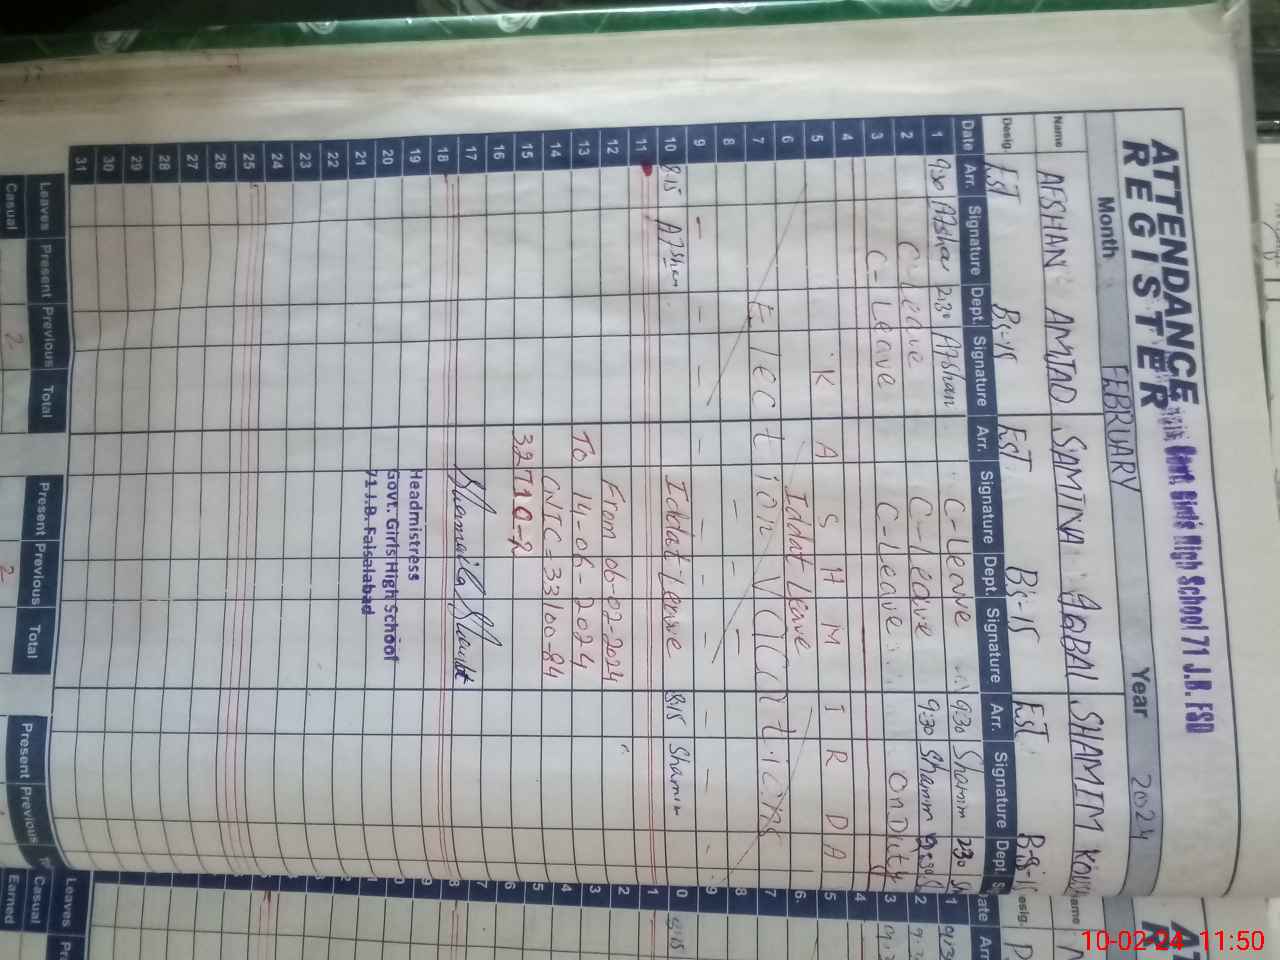 ATTENDANCE
REGISTER
Govt. Girls High School 71 J.B. FSD
Month FEBRUARY Year 2024
Name AFSHAN AMJAD SAMINA IQBAL SHAMIM
Desig. EST BS-15 EST BS-15 EST BS-15
Date Arr. Signature Dept. Signature Arr. Signature Dept. Signature Arr. Signature Dept.
1 9:30 Afshan 2:30 Afshan C-Leave 9:30 Shamim 2:30
2 C-Leave C-Leave 9:30 Shamim
3 C-Leave C-Leave On Duty
4
5 K A S H M I R D A
6 Iddat Leave
7 Election Vacations
8
9
10 8:15 Afshan Iddat Leave 8:15 Shamim
11
12 From 06-02-2024
13 To 14-06-2024
14 CNIC=33100-84
15 32710-2
16
17
18
19 Headmistress
20 Govt. Girls High School
21 71 J.B. Faisalabad
22
23
24
25
26
27
28
29
30
31
Leaves Present Previous Total Present Previous Total Present Previous
Casual 2 2
Date Arr
1
2
3
4
5
6
7
8
9
0 8:15
1
2
3
4
5
6
7
8
9
0
Leaves
Casual
Earned
10-02-24 11:50